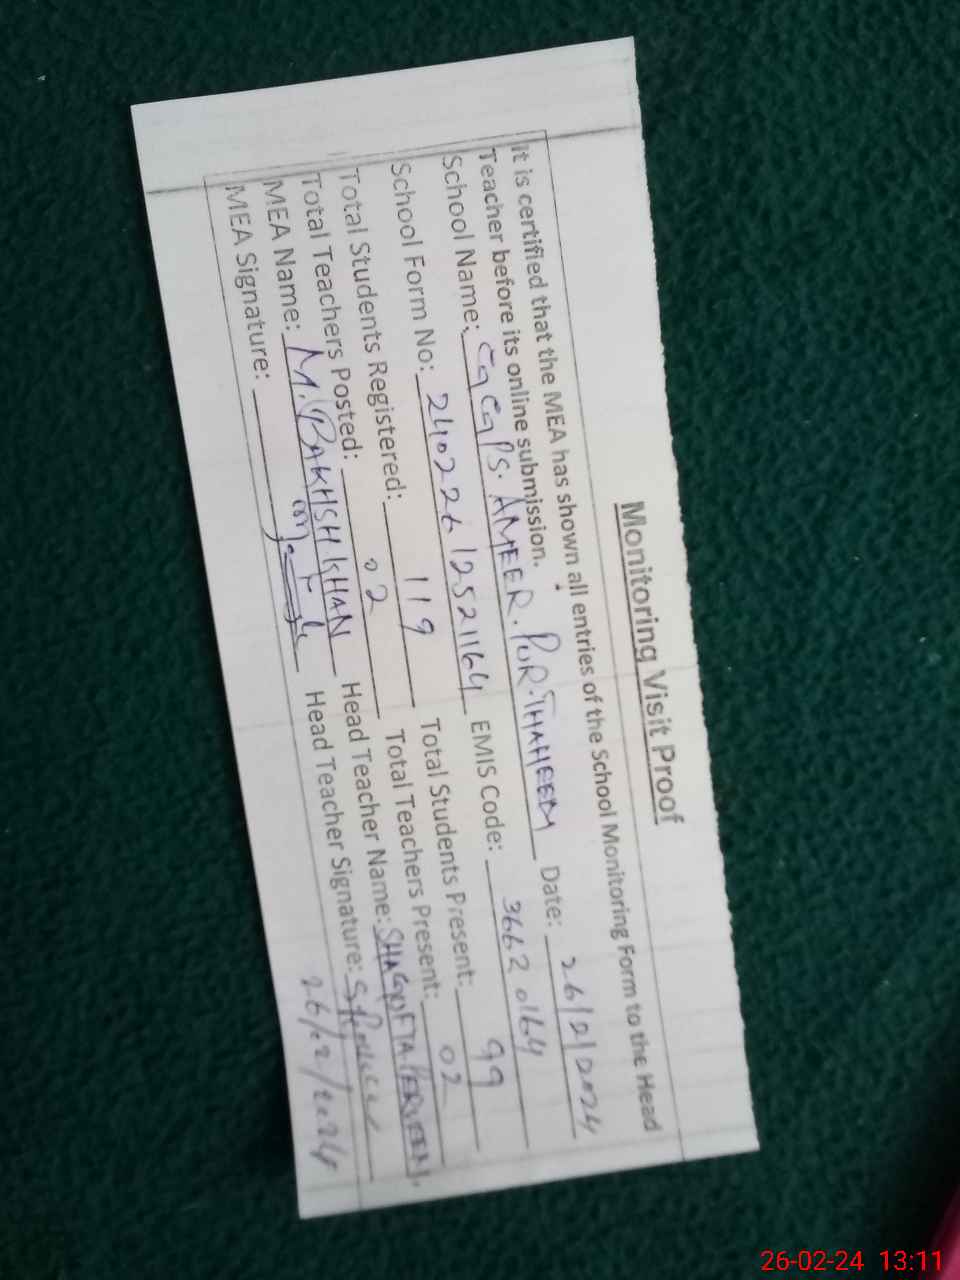 Monitoring Visit Proof
It is certified that the MEA has shown all entries of the School Monitoring Form to the Head
Teacher before its online submission.
School Name: GGPS. AMEER. PUR. THAHEEM Date: 26/2/2024
School Form No: 24022612521164 EMIS Code: 36620164
Total Students Registered: 119 Total Students Present: 99
Total Teachers Posted: 02 Total Teachers Present: 02
MEA Name: M. BAKHSH KHAN Head Teacher Name: SHAGUFTA. PERVEEN.
MEA Signature: Head Teacher Signature:
26/2/2024
26-02-24 13:11